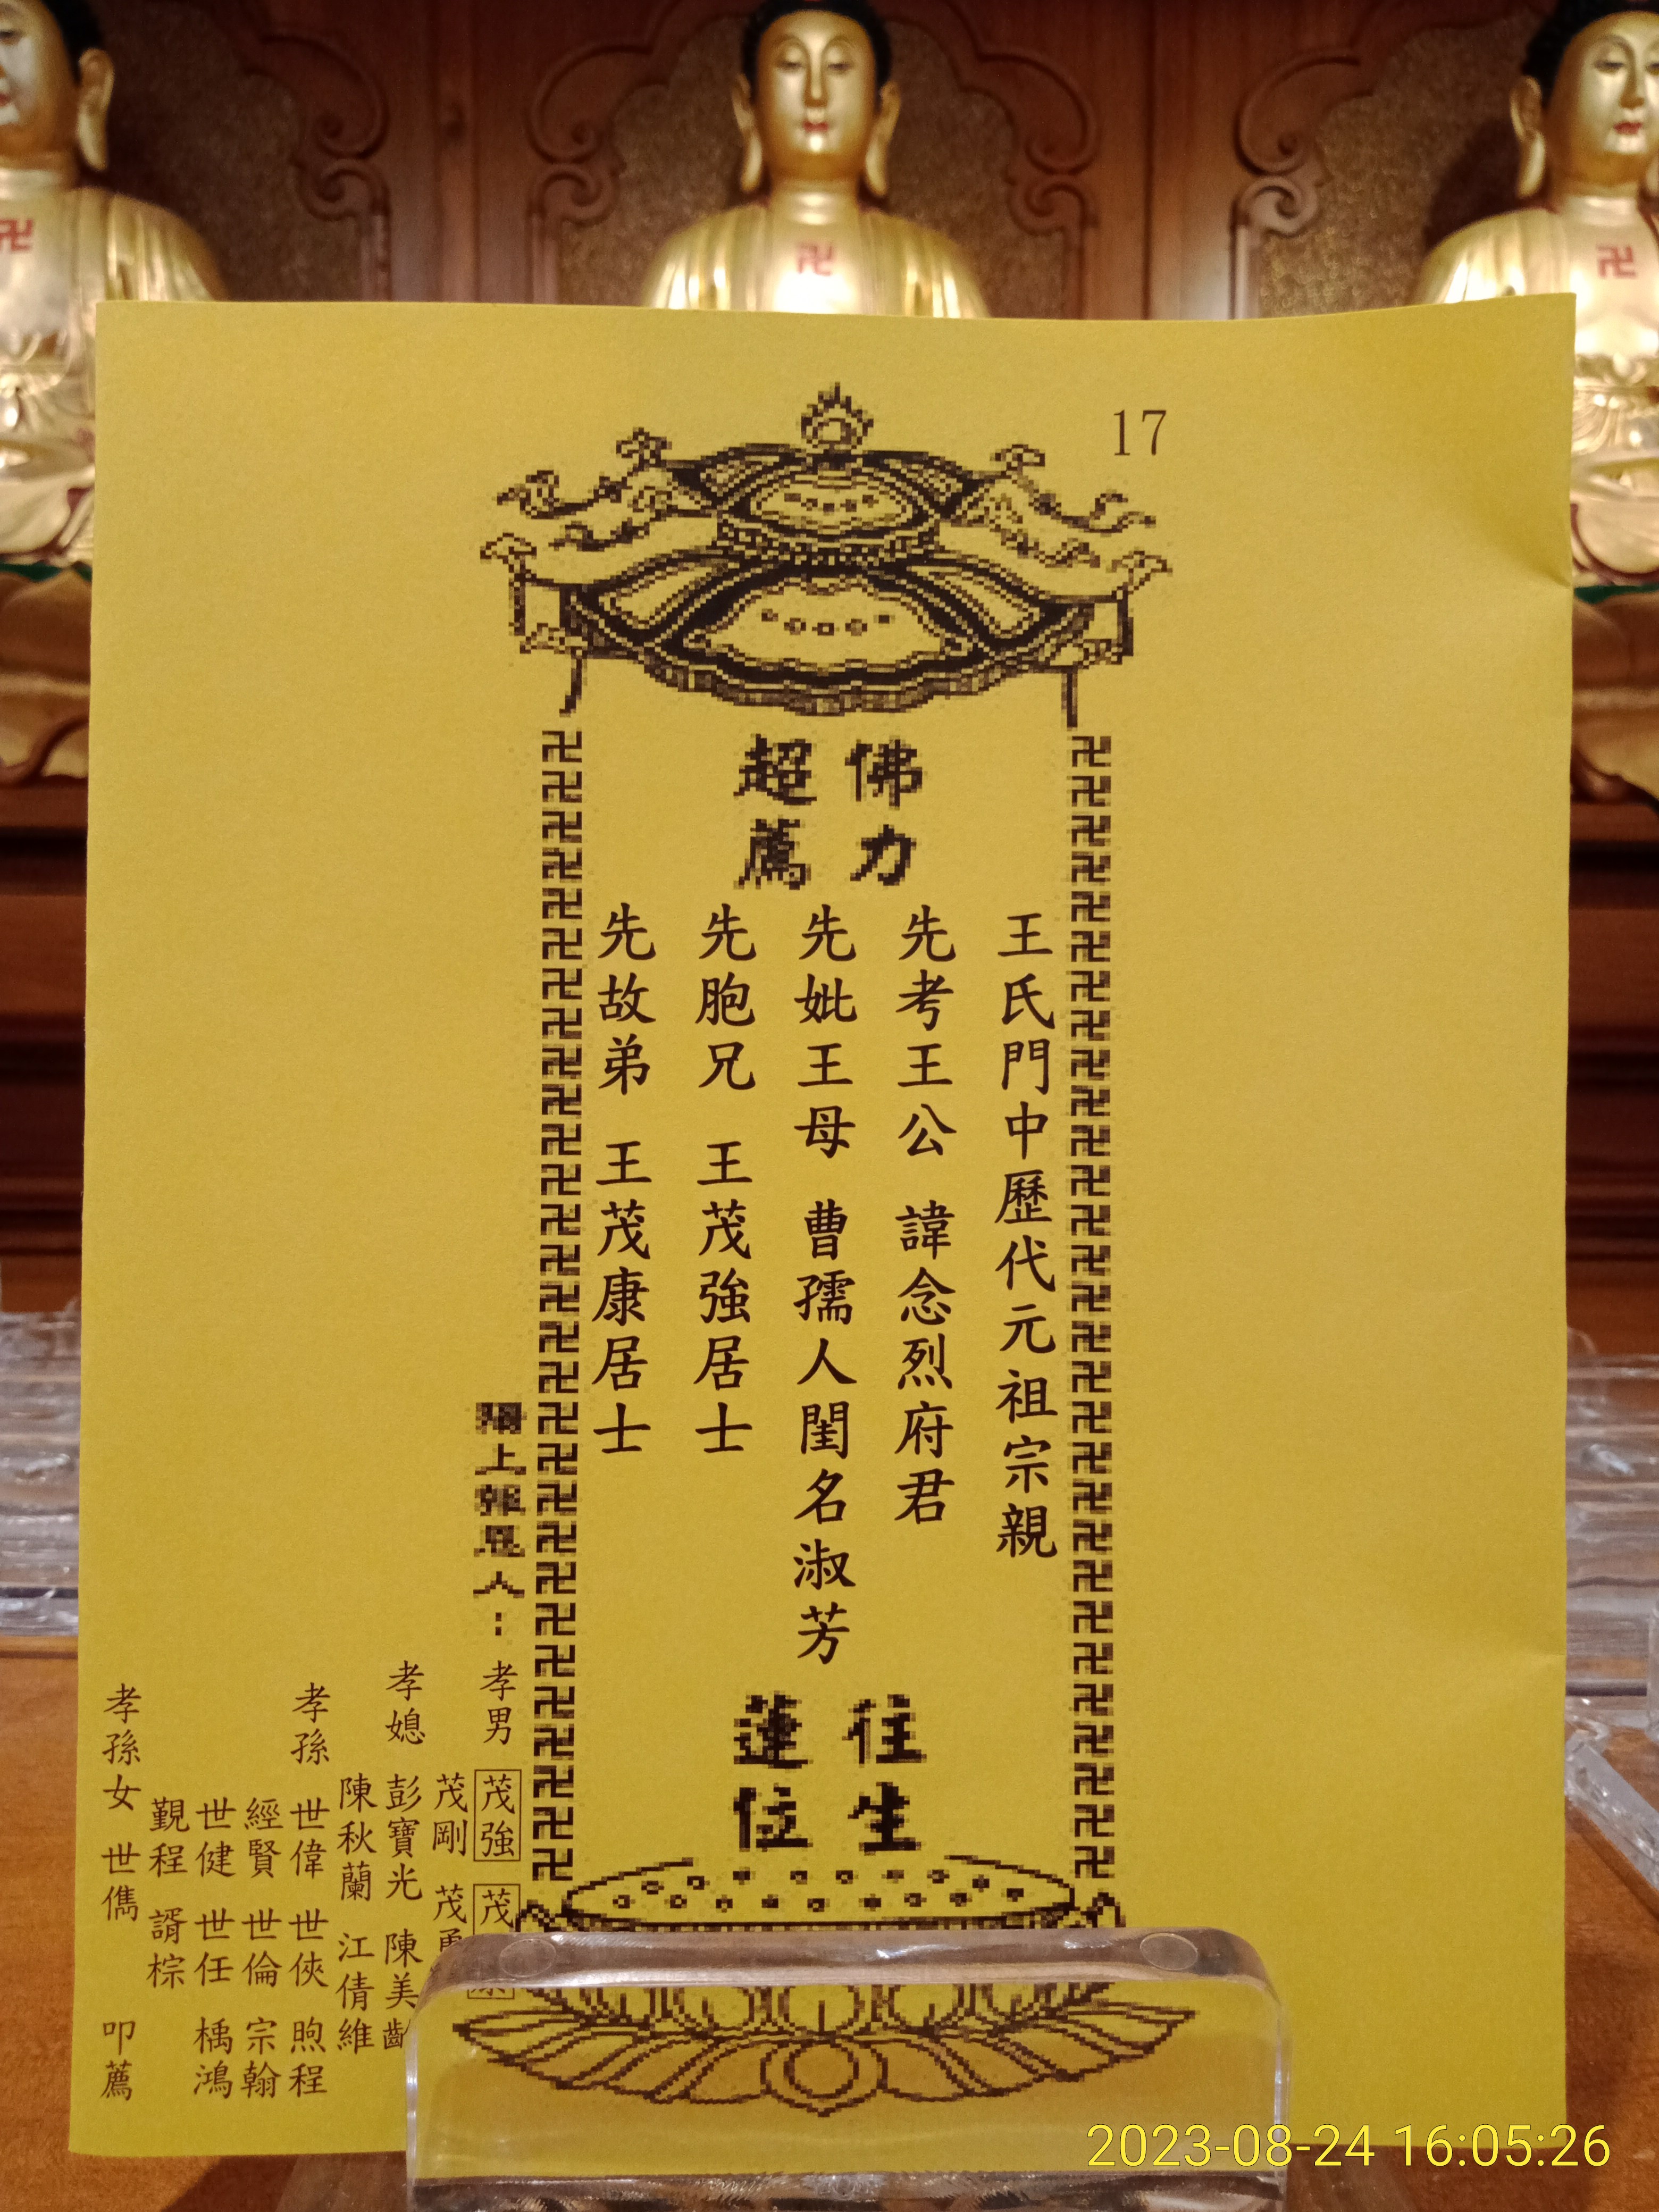 17
佛力
超薦
王氏門中歷代元祖宗親
先考王公 諱念烈府君
先妣王母 曹孺人閨名淑芳
先胞兄 王茂強居士
先故弟 王茂康居士
往生
蓮位
陽上報恩人：孝男 茂強 茂康
茂剛 茂勇
孝媳 彭寶光 陳美齡
陳秋蘭 江倩維
孝孫 世偉 世俠 煦程
經賢 世倫 宗翰
世健 世任 楀鴻
覲程 諝棕
孝孫女 世儁 叩薦
2023-08-24 16:05:26